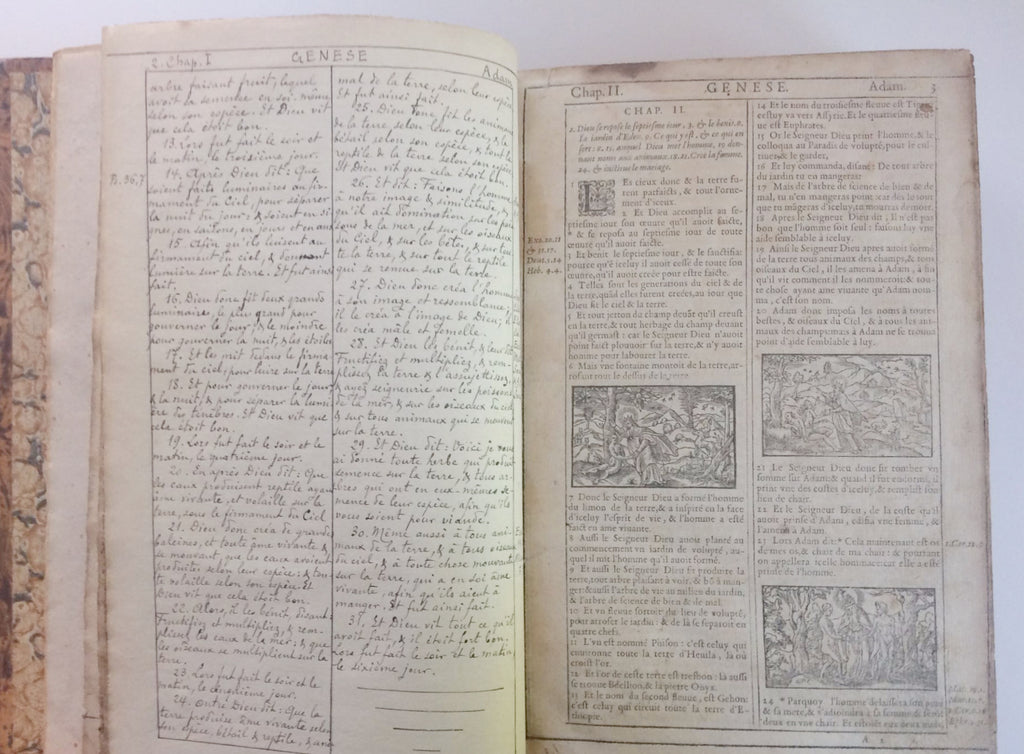 2. Chap. I
GENESE
Adam
arbre faisant fruit, lequel
avoit sa semence en soi-même
selon son espèce. Et Dieu vit
que cela étoit bon.
13. Lors fut fait le soir et
le matin, le troisième jour.
14. Après Dieu dit: Que
soient faits luminaires au fir-
mament du Ciel, pour séparer
la nuit du jour: & soient en si-
gnes, en saisons, en jours et en ans
15. Afin qu'ils luisent au
firmament du ciel, & donnent
lumière sur la terre. Et fut ainsi
fait.
16. Dieu donc fit deux grands
luminaires, le plus grand pour
gouverner le jour, & le moindre
pour gouverner la nuit, & les étoiles
17. Et les mit dedans le firma-
ment du ciel, pour luire sur la terre
18. Et pour gouverner le jour
& la nuit, & pour séparer la lumi
ère des ténèbres. Et Dieu vit que
cela étoit bon.
19. Lors fut fait le soir et le
matin, le quatrième jour.
20. En après Dieu dit: Que
les eaux produisent reptile ayant
âme vivante, et volaille sur la
terre, sous le firmament du Ciel
21. Dieu donc créa de grandes
baleines, et toute âme vivante &
se mouvant, que les eaux avoient
produites selon leur espèce: & tou-
te volaille selon son espèce. Et
Dieu vit que cela étoit bon.
22. Alors, il les bénit, disant:
Fructifiez et multipliez, & rem-
plissez les eaux de la mer: & que
les oiseaux se multiplient sur la
terre.
23. Lors fut fait le soir et le
matin, le cinquième jour.
24. Outre Dieu dit: Que la
terre produise âme vivante selon
son espèce, bétail & reptile, & ani
mal de la terre, selon leur espèce
Et fut ainsi fait.
25. Dieu donc, fit les animau
de la terre, selon leur espèce, & le
bétail selon son espèce, & tout le
reptile de la terre selon son espèce
Et Dieu vit que cela étoit bon.
26. Et dit: Faisons l'homme
à notre image & similitude, &
qu'il ait domination sur les pois
sons de la mer, et sur les oiseaux
du Ciel, & sur les bêtes, & sur tou
te la terre, & sur tout le reptile
qui se remue sur la terre.
27. Dieu donc créa l'homme
à son image et ressemblance,
il le créa à l'image de Dieu; il
les créa mâle et femelle.
28. Et Dieu les bénit, & leur dit
Fructifiez et multipliez, & rem-
plissez la terre & l'assujettissez
& ayez seigneurie sur les poissons
de la mer, & sur les oiseaux du ciel
& sur tous animaux qui se meuvent
sur la terre.
29. Et Dieu dit: Voici je vous
ai donné toute herbe qui produit
semence sur la terre, & tous ar-
bres qui ont en eux-mêmes se-
mence de leur espèce, afin qu'ils
vous soient pour viande.
30. Même aussi à tous ani-
maux de la terre, & à tous oiseaux
du ciel, & à toute chose mouvante
sur la terre, qui a en soi âme
vivante, afin qu'ils aient à
manger. Et fut ainsi fait.
31. Et Dieu vit tout ce qu'il
avoit fait, & il étoit fort bon.
Lors fut fait le soir et le matin
le sixième jour.
Chap. II.
GENESE.
Adam.
3
CHAP. II.
1. Dieu se repose le septiesme iour, 3. & le benit. 8.
Le iardin d'Eden. 9. Ce que
24. & institue le mariage.
LEs cieux donc & la terre fu-
rent parfaicts, & tout l'orne-
ment d'iceux.
2 Et Dieu accomplit au se-
ptiesme iour son œuure qu'il auoit faicte,
* & se reposa au septiesme iour de toute
œuure qu'il auoit faicte.
3 Et benit le septiesme iour, & le sactifia:
pource qu'é iceluy il auoit cessé de toute son
œuure, qu'il auoit creée pour estre faicte.
4 Telles sont les generations du ciel & de
la terre, quád elles furent creées, au iour que
Dieu fit le ciel & la terre.
5 Et tout ietton du champ deuát qu'il creust
en la terre, & tout herbage du champ deuant
qu'il germast: car le Seigneur Dieu n'auoit
point faict plouuoir sur la terre, & n'y auoit
homme pour labourer la terre.
6 Mais vne fontaine montoit de la terre, ar-
rosant tout le dessus de la terre.
7 Donc le Seigneur Dieu a formé l'homme
du limon de la terre, & a inspiré en la face
d'iceluy l'esprit de vie, & l'homme a esté
faict en ame viuante.
8 Aussi le Seigneur Dieu auoit planté au
commencement vn iardin de volupté, au-
quel il mit l'homme qu'il auoit formé.
9 Et aussi le Seigneur Dieu fit produire de la
terre, tout arbre plaisant à voir, & bô à man-
ger: & aussi l'arbre de vie au milieu du iardin,
& l'arbre de science de bien & de mal.
10 Et vn fleuue sortoit du lieu de volupté,
pour arroser le iardin: & de là se separoit en
quatre chefs.
11 L'vn est nommé Phison: c'est celuy qui
enuironne toute la terre d'Heuila, là où
croist l'or.
12 Et l'or de ceste terre est tresbon: là aussi
se trouue Bdellion, & la pierre Onyx.
13 Et le nom du second fleuue, est Gehon:
c'est celuy qui circuit toute la terre d'E-
thiopie.
14 Et le nom du troisiesme fleuue est Tigre:
cestuy va vers Assyrie. Et le quatriesme fleu-
ue est Euphrates.
15 Or le Seigneur Dieu print l'homme, & le
colloqua au Paradis de volupté, pour le cul-
tiuer, & le garder,
16 Et luy commanda, disant: De tout arbre
du iardin tu en mangeras:
17 Mais de l'arbre de science de bien & de
mal, tu n'en mangeras point: car dés le iour
que tu mágeras d'iceluy, tu mourras de mort.
18 Apres le Seigneur Dieu dit, Il n'est pas
bon que l'homme soit seul: faisons luy vne
aide semblable à iceluy.
19 Ainsi le Seigneur Dieu apres auoir formé
de la terre tous animaux des champs, & tous
oiseaux du Ciel, il les amena à Adam, à fin
qu'il vit comment il les nommeroit: & tou-
te chose ayant ame viuante qu'Adam nom-
ma, c'est son nom.
20 Adam donc imposa les noms à toutes
bestes, & oiseaux du Ciel, & à tous les ani-
maux des champs: mais à Adam ne se trouua
point d'aide semblable à luy.
21 Le Seigneur Dieu donc fit tomber vn
somme sur Adam: & quand il fut endormi, il
print vne des costes d'iceluy, & remplist son
lieu de chair.
22 Et le Seigneur Dieu, de la coste qu'il
auoit prinse d'Adam, edifia vne femme, &
l'amena à Adam.
23 Lors Adam dit: * Cela maintenant est os
de mes os, & chair de ma chair: & pourtant
on appellera icelle hommace: car elle a esté
prinse de l'homme.
24 * Parquoy l'homme delaissera son pere
& sa mere, & s'adioindra à sa femme, & seront
deux en vne chair.
Exo. 20. 11
& 31. 17.
Deut. 5. 14
Heb. 4. 4.